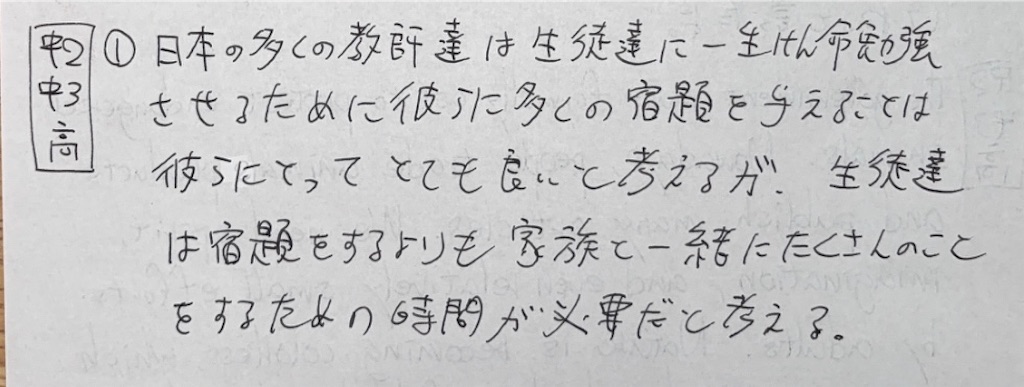 中2 中3 高
① 日本の多くの教師達は生徒達に一生けん命勉強
させるために彼らに多くの宿題を与えることは
彼らにとってとても良いと考えるが、生徒達
は宿題をするよりも家族と一緒にたくさんのこと
をするための時間が必要だと考える。